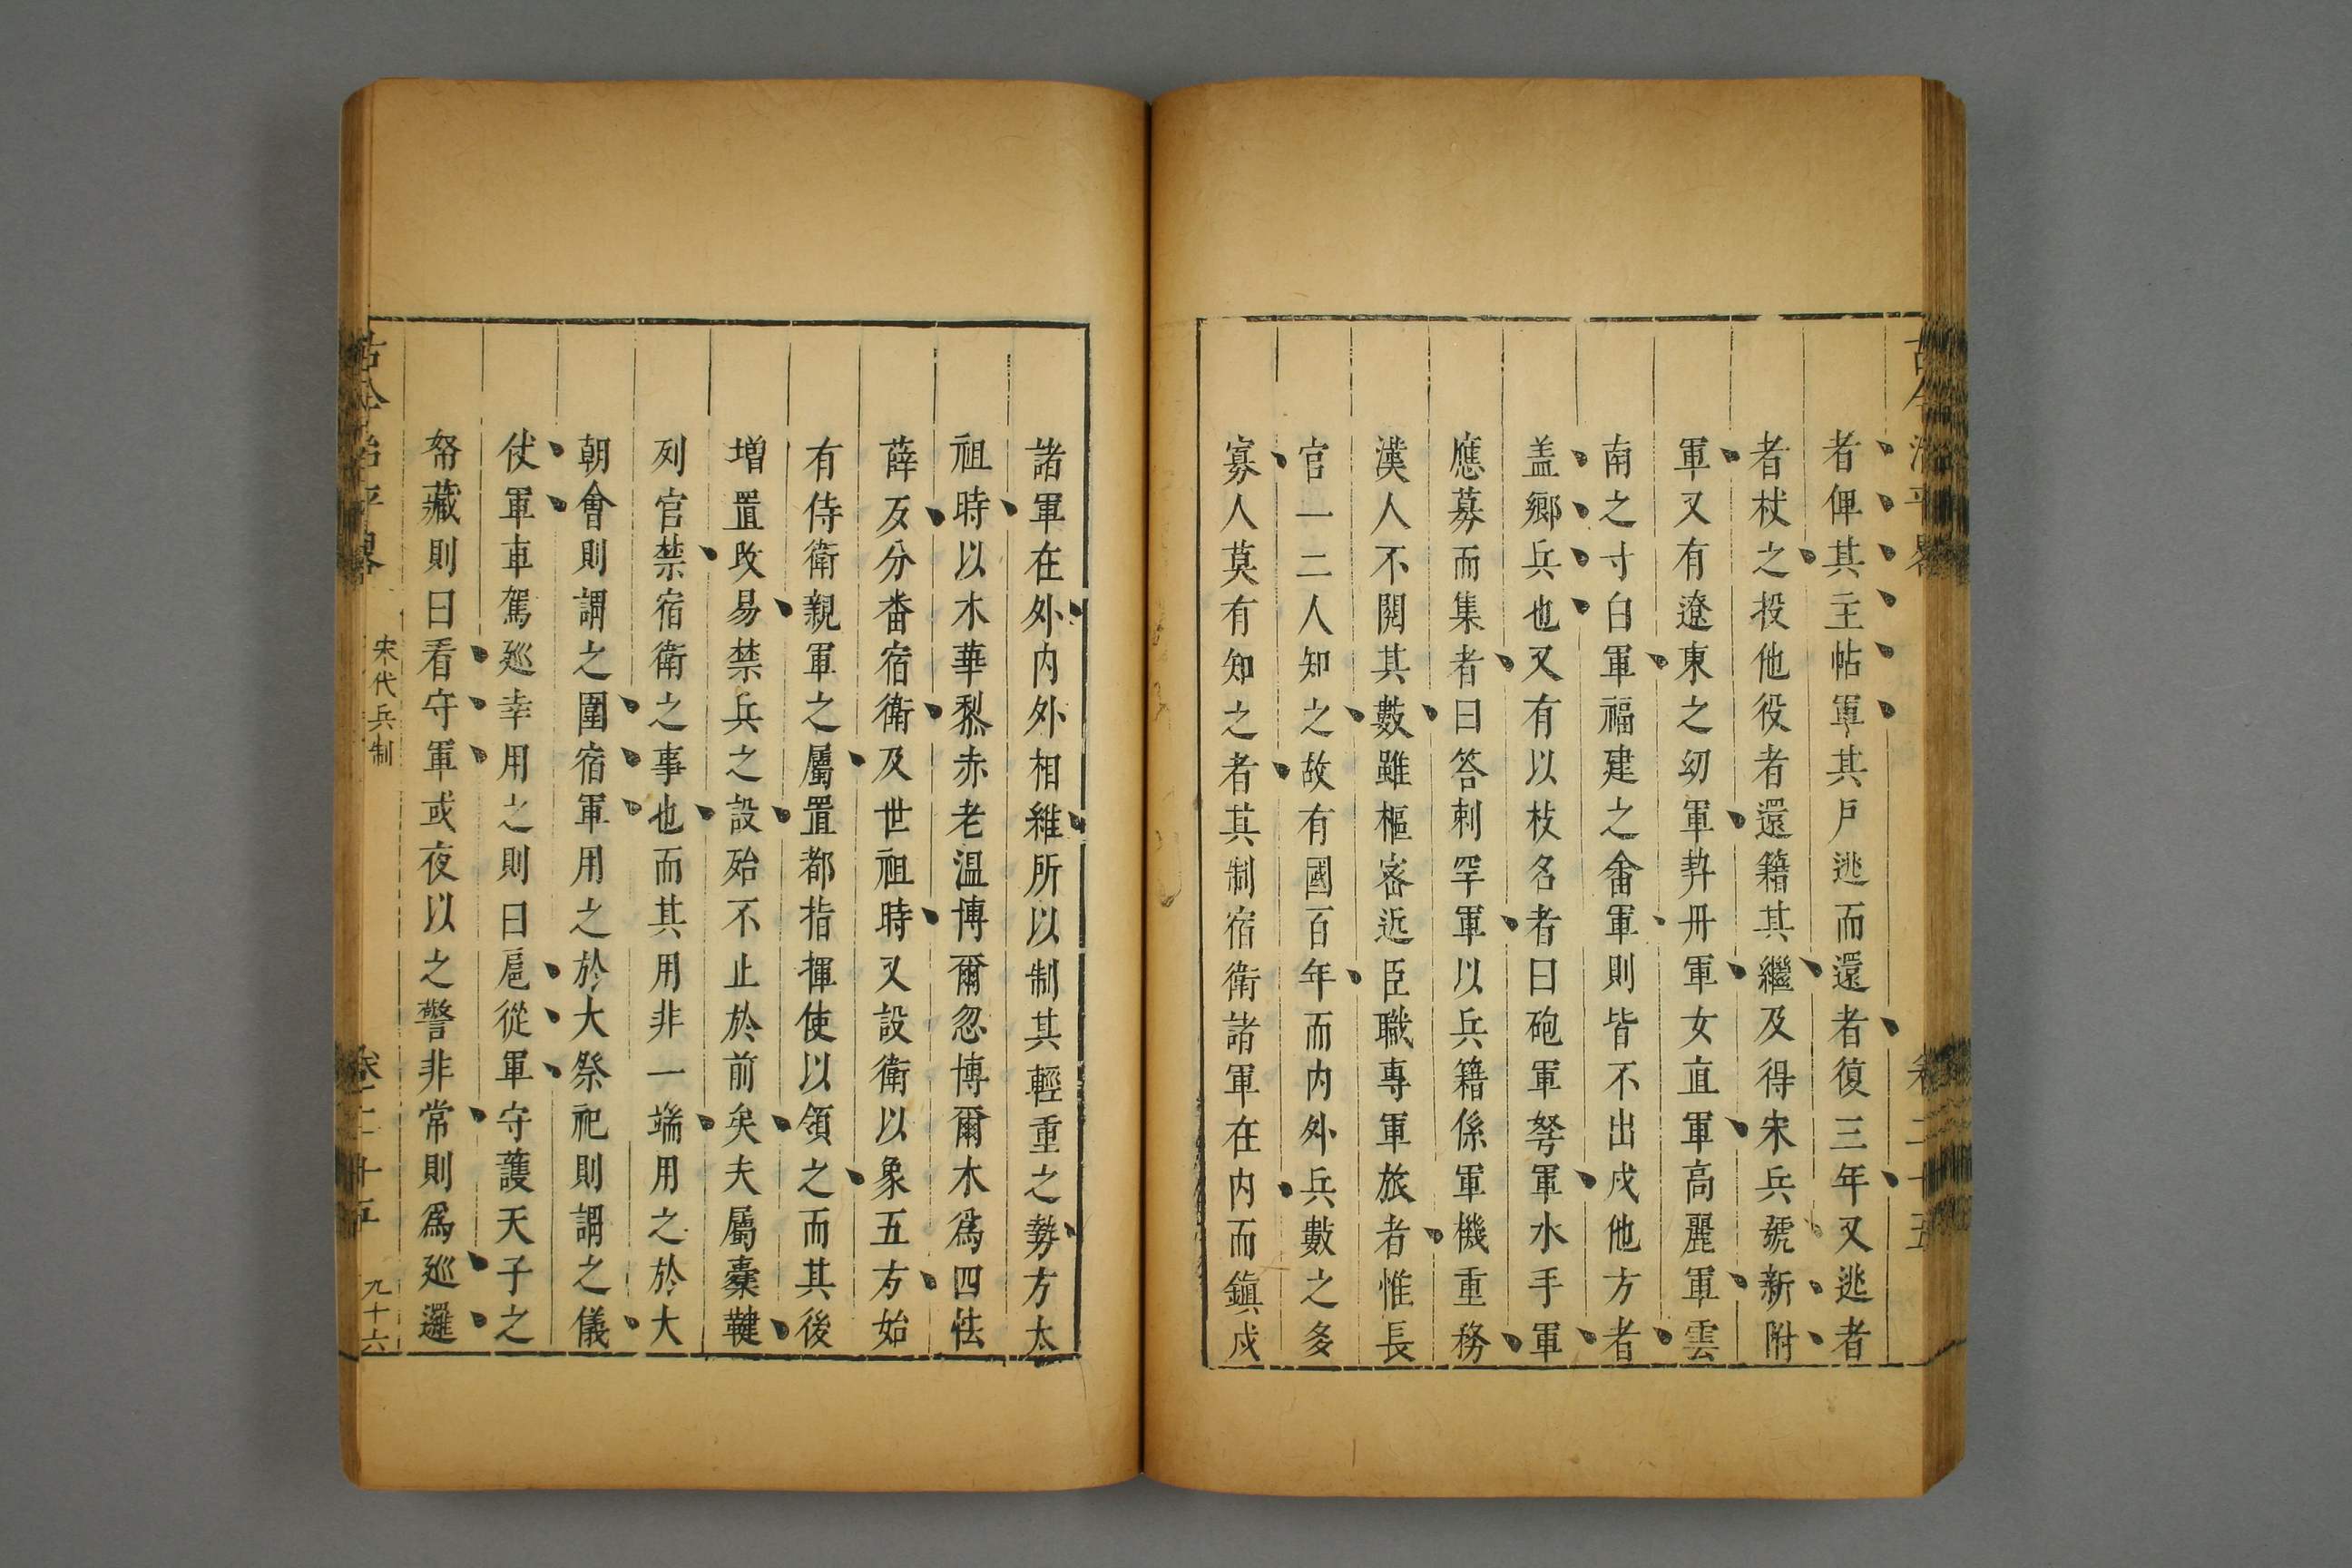 者俾其主帖軍其戶逃而還者復三年又逃者
者杖之投他役者還籍其繼及得宋兵號新附
軍又有遼東之糿軍契丹軍女直軍高麗軍雲
南之寸白軍福建之畲軍則皆不出戍他方者
盖鄉兵也又有以枝名者曰砲軍弩軍水手軍
應募而集者曰答剌罕軍以兵籍係軍機重務
漢人不閱其數雖樞密近臣職專軍旅者惟長
官一二人知之故有國百年而內外兵數之多
寡人莫有知之者其制宿衛諸軍在內而鎮戍
諸軍在外內外相維所以制其輕重之勢方太
祖時以木華黎赤老溫博爾忽博爾木為四怯
薛歹分番宿衛及世祖時又設衛以象五方始
有侍衛親軍之屬置都指揮使以領之而其後
增置改易禁兵之設殆不止於前矣夫屬櫜鞬
列宮禁宿衛之事也而其用非一端用之於大
朝會則謂之圍宿軍用之於大祭祀則謂之儀
仗軍車駕巡幸用之則曰扈從軍守護天子之
帑藏則曰看守軍或夜以之警非常則為巡邏
古今治平畧
宋代兵制
卷二十五
九十六